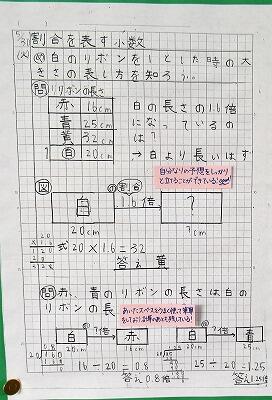 5/31 割合を表す小数
(火) め 白のリボンを1とした時の大
きさの表し方を知ろう。
問 リボンの長さ
赤 16cm
青 25cm
黄 32cm
1 白 20cm
白の長さの1.6倍
になっているの
は?
→白より長いはず
自分なりの予想をしっかり
と立てることができている!
図
の割合
白 1.6倍 ?
20cm ?cm
式 20×1.6=32
答え 黄
問 赤、青のリボンの長さは白の
リボンの長
あいたスペースをうまく使って筆算
白 ?倍 赤
20cm 16cm
白 ?倍 青
20cm 25cm
16÷20=0.8
答え0.8倍
25÷20=1.25
答え1.25倍